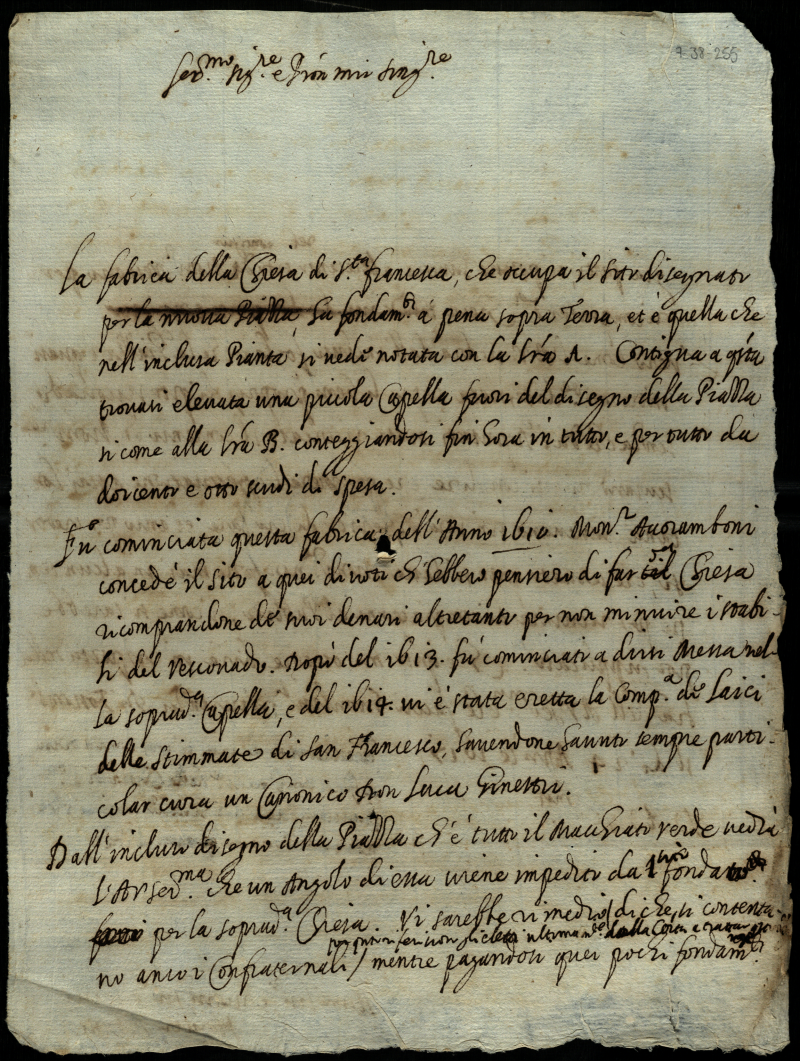 9-38-255
Ser.mo sig.re e Pròn mio sing.re
La fabrica della Chiesa di S.ta francesca, che occupa il sito disegnato
per la nuova Piazza, hà fondam.ti à pena sopra Terra, et è quella che
nell'inclusa Pianta si vede notata con la lrã A. Contigua a q̃sta
trovasi elevata una piccola Capella fuori del disegno della Piazza
si come alla lrã B. conteggiandosi fin hora in tutto, e per tutto da
doicento e otto scudi di spesa.
Fù cominciata questa fabrica dell'Anno 1610. Mon.r Accoramboni
concedè il sito a quei divoti ch'hebbero pensiero di far Chiesa
ricomprandone de suoi denari altretanto per non minuire i stabi-
li del Vescovado. Dopò del 1613. fù cominciato a dirsi Messa nel-
la soprad.a Capella, e del 1614. vi è stata eretta la Comp.a de Laici
delle Stimmate di San Francesco, havendone havuto sempre parti-
colar cura un Canonico Don Luca Ginettij.
Dall'incluso disegno della Piazza ch'è tutto il Macchiato verde vedrà
l'A V ser.ma che un Angolo di essa viene impedito da
per la soprad.a Chiesa. Vi sarebbe rimedio / di che si contenta-
ultimam.te dalla
no anco i Confraternali / mentre pagandosi quei pochi fondam.ti